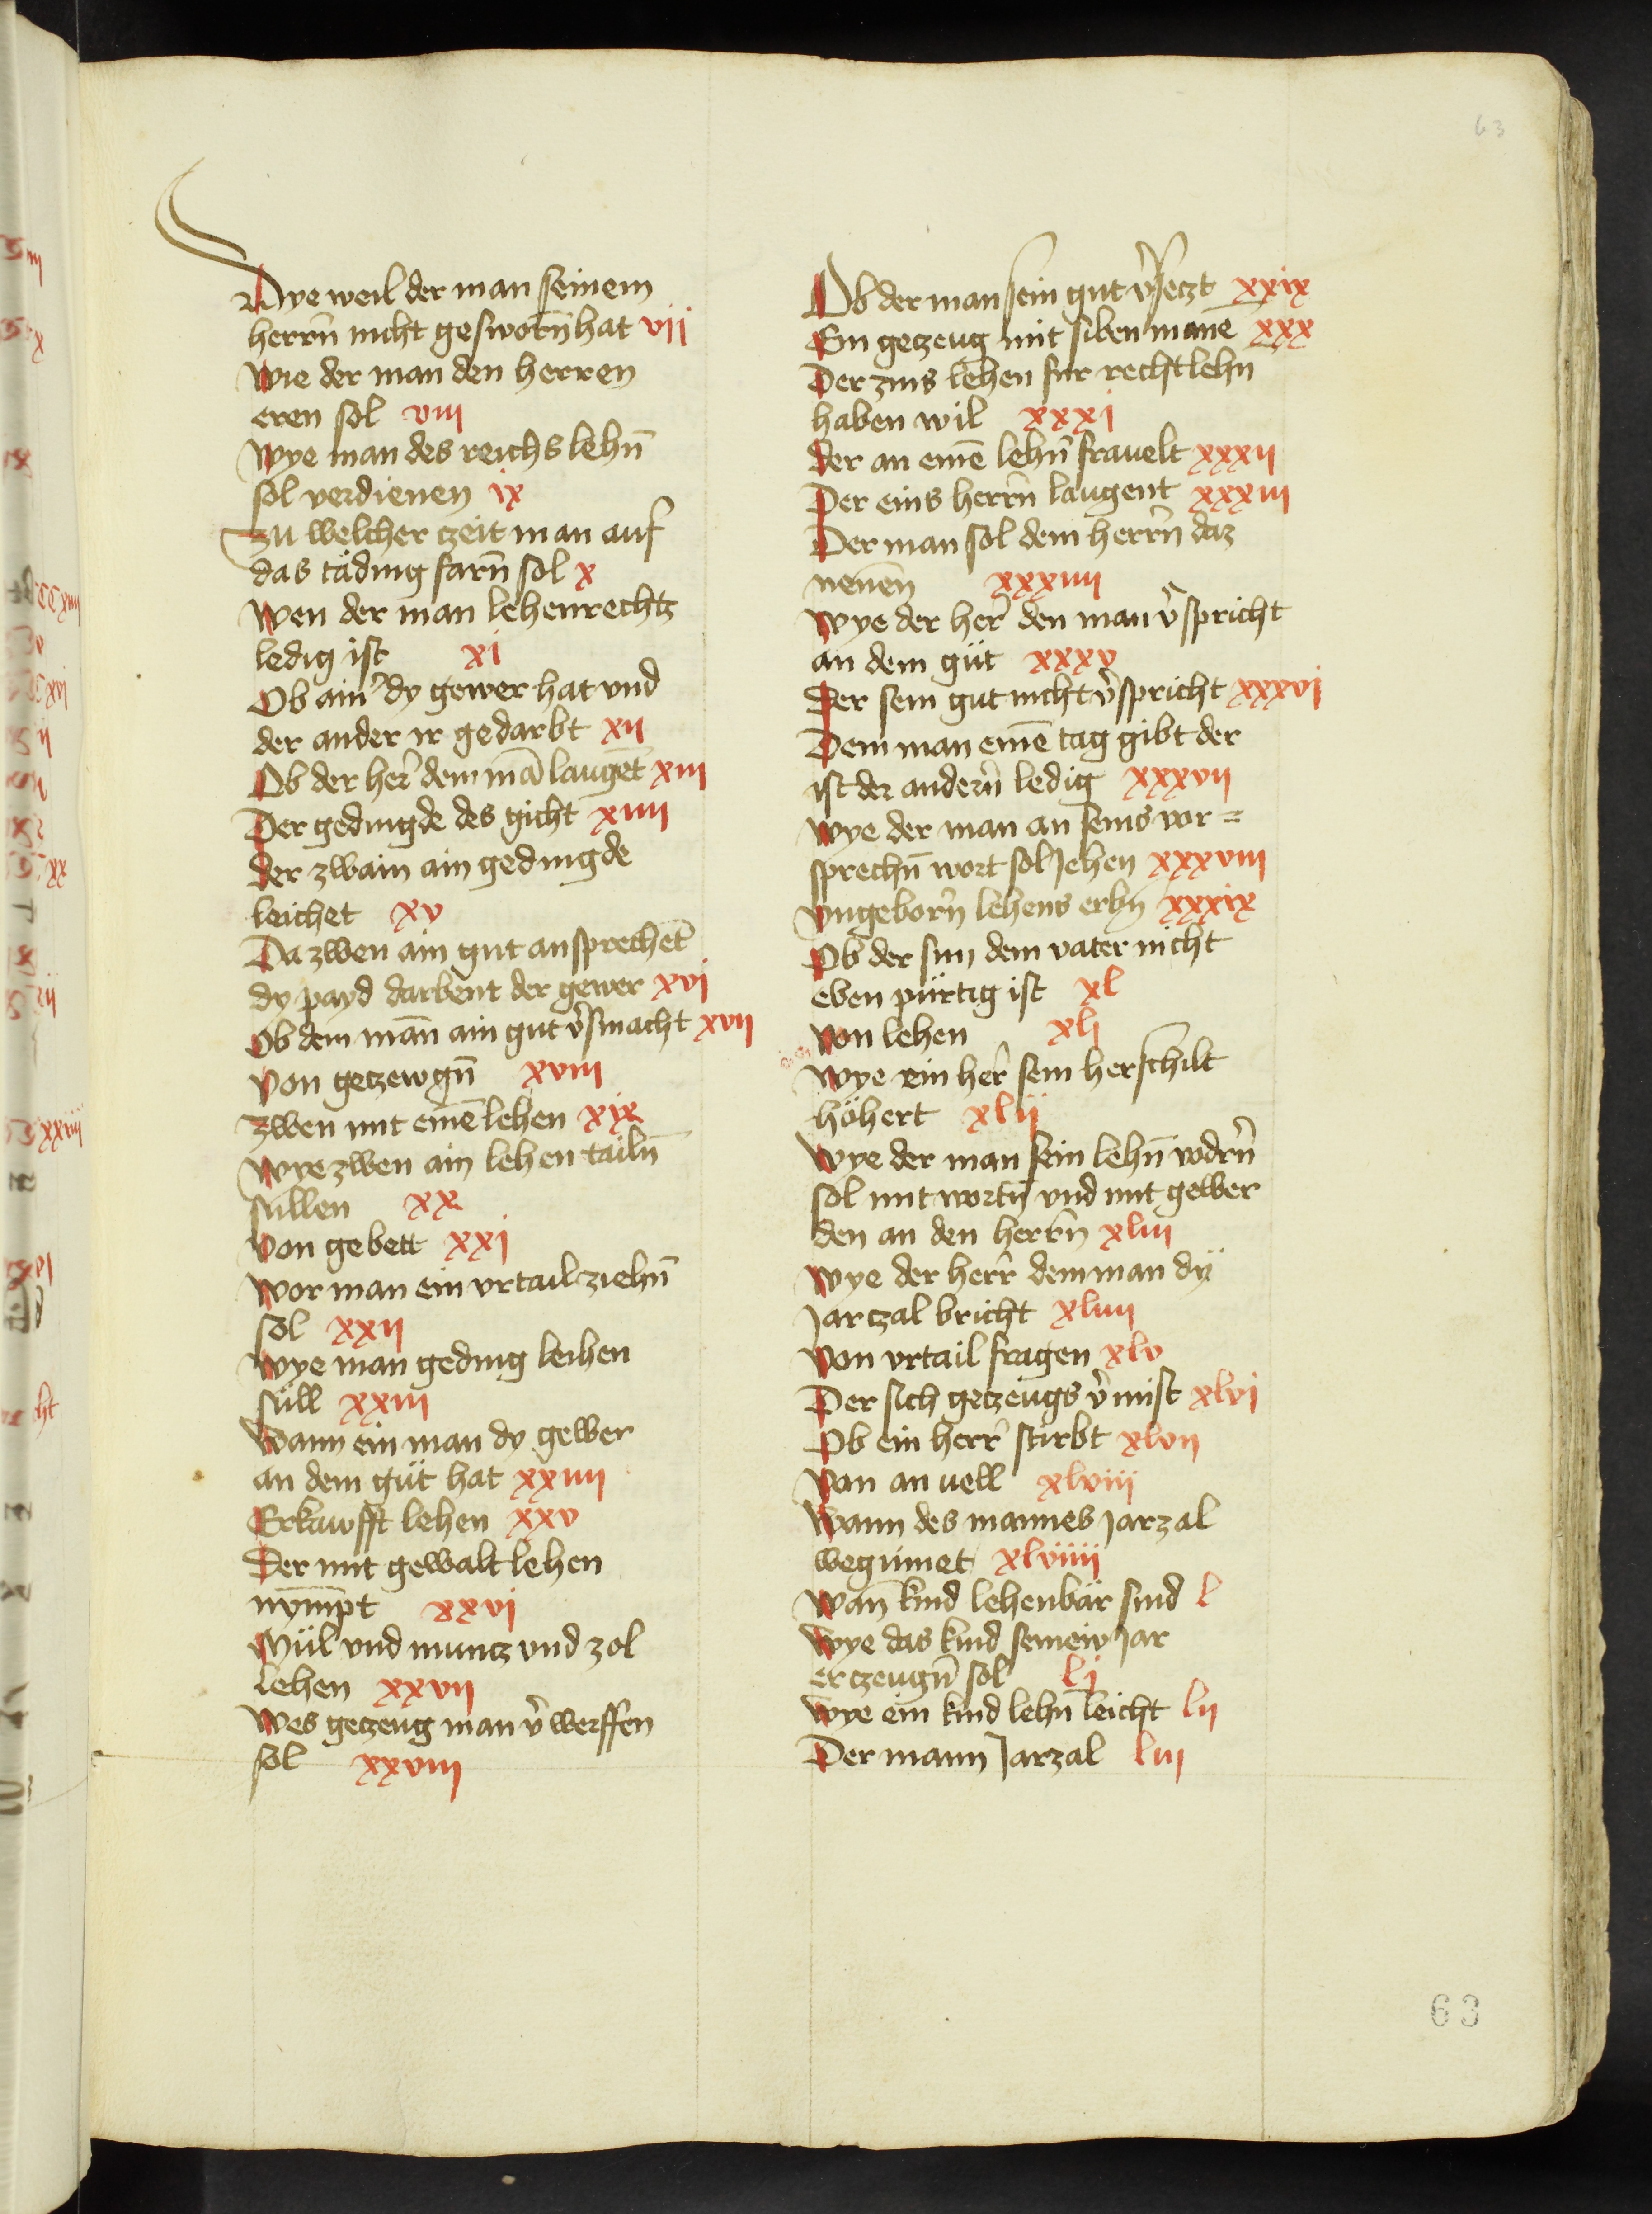 63
Dye weil der man seinem
herrn̄ nicht gesworn̄ hat vij
Wie der man den herren
eren sol viij
Wye man des reichs lehn̄
sol verdienen ix
Zu welcher czeit man auf
das täding farn̄ sol x
Wen der man lehenrechtz
ledig ist xi
Ob ainˀ dy gewer hat vnd
der ander ir gedarbt xij
Ob der herˀ dem mā laugēt xiij
Der gedingde des gicht xiiij
der zwain ain gedingde
leichet xv
Da zwen ain gut ansprechet̄
dy payd darbent der gewer xvj
Ob dem mān ain gut v̂smacht xvij
Von geczewgn̄ xviij
Zwen mit einē lehen xix
Wye zwen ain lehen tailn̄
süllen xx
Von gebett xxj
Wor man ein vrtail ziehn̄
sol xxij
Wye man geding leihen
süll xxiij
Wann ein man dy gewer
an dem güt hat xxiiij
Erkawfft lehen xxv
Der mit gewalt lehen
nym̄pt xxvj
Mül vnd muntz vnd zol
lehen xxvij
Wes geczeug man v̂werffen
sol xxviij
Ob der man sein gut v̂seczt xxix
Ein geczeug mit siben manē xxx
Der zins lehen fur rechtlehn
haben wil xxxj
der an einē lehn̄ frauelt xxxij
Der eins herrn̄ laugent xxxiij
Der man sol dem herrn̄ daz
nenēn xxxiiij
Wye der herˀ den man v̂spricht
an dem güt xxxv
Der sein gut nicht v̂spricht xxxvj
Dem man einē tag gibt der
ist der andern̄ ledig xxxvij
Wye der man an seins vor=
sprechn̄ wort sol jehen xxxviij
Vngeborn̄ lehens erbn xxxix
Ob der sun dem vater nicht
eben pürtig ist xl
Von lehen xlj
Wye ein herˀ sein herschilt
höhert xlij
Wye der man sein lehn̄ vodrn̄
sol mit wortn̄ vnd mit gewer
den an den herrn̄ xliij
Wye der herrˀ dem man dÿ
jarczal bricht xliiij
Von vrtail fragen xlv
Der sich geczeugs v̂mist xlvj
Ob ein herrˀ stirbt xlvij
Von an uell xlviij
Wann des mannes jarzal
wegūnet xlviiij
Wan̄ kind lehenbär sind l
Wye das kind seinew jar
erczeugn̄ sol lj
Wye ein kind lehn̄ leicht lij
Der mann jarzal liij
63